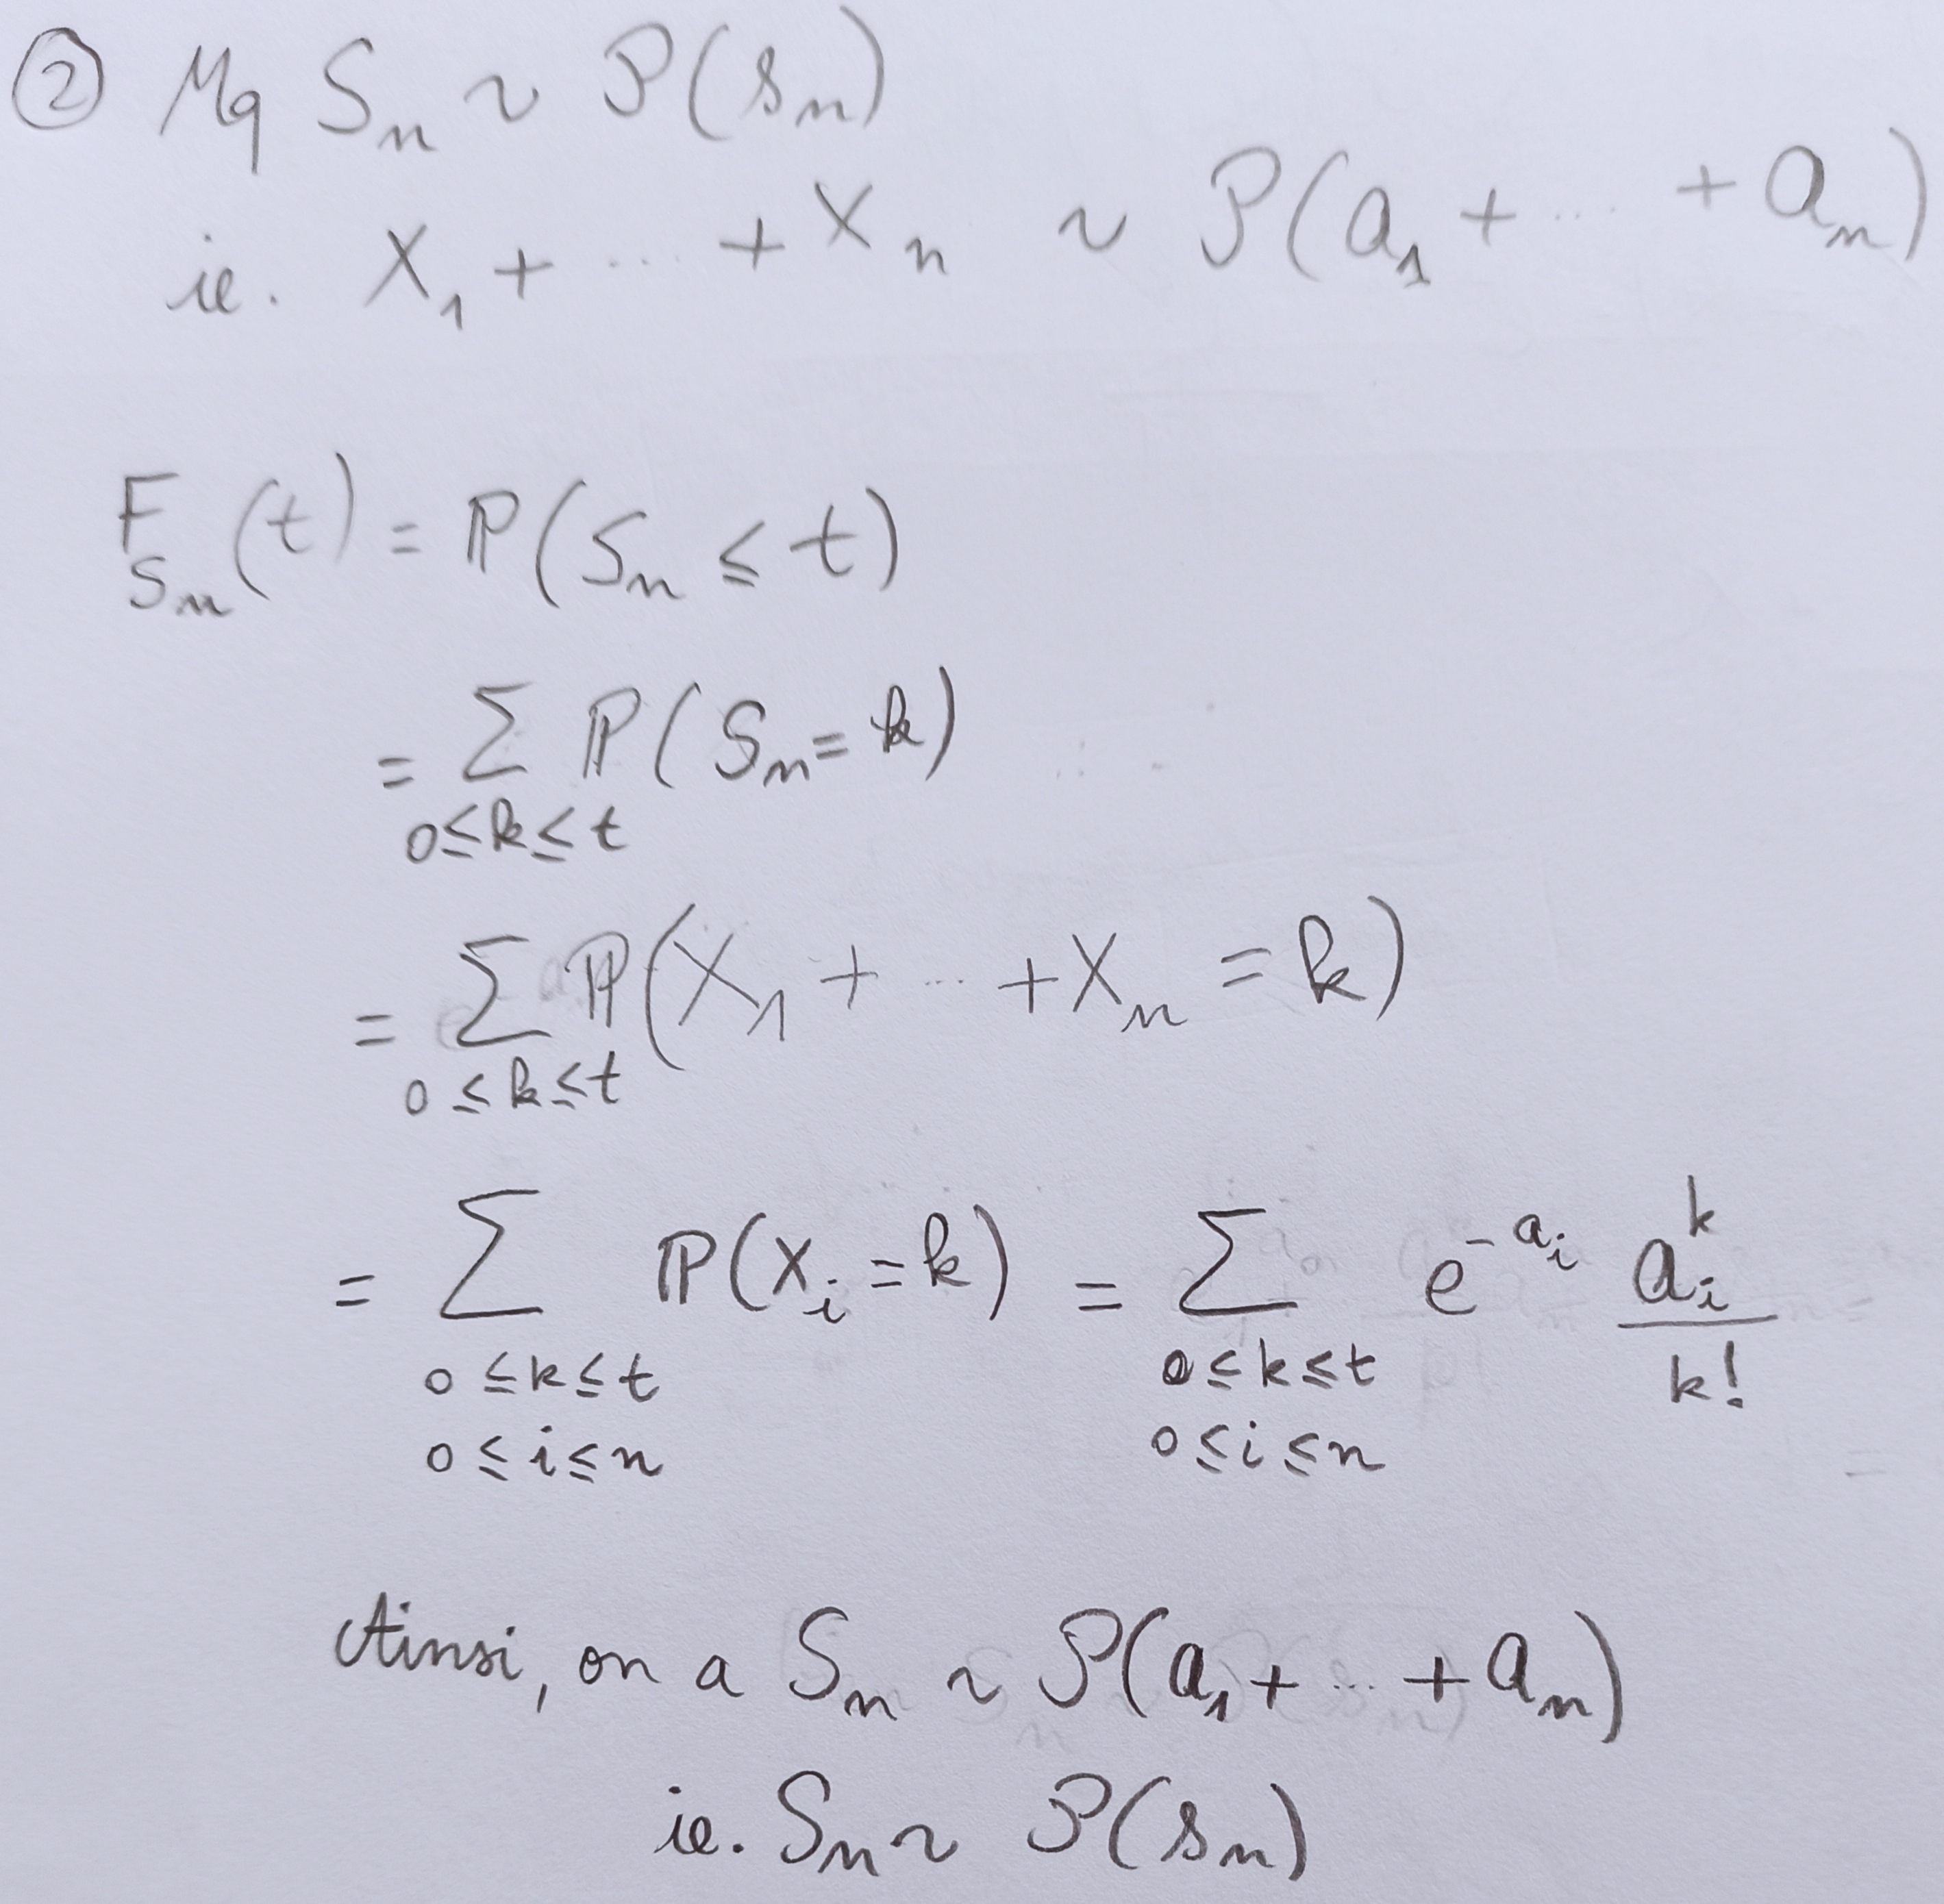 ② Mq Sₙ ~ 𝒫(sₙ)
ie. X₁ + ... + Xₙ ~ 𝒫(a₁ + ... + aₙ)
F_{Sₙ}(t) = ℙ(Sₙ ≤ t)
= ∑_{0≤k≤t} ℙ(Sₙ = k)
= ∑_{0≤k≤t} ℙ(X₁ + ... + Xₙ = k)
= ∑_{0≤k≤t, 0≤i≤n} ℙ(Xᵢ = k) = ∑_{0≤k≤t, 0≤i≤n} e^{-aᵢ} aᵢ^k / k!
Ainsi, on a Sₙ ~ 𝒫(a₁ + ... + aₙ)
ie. Sₙ ~ 𝒫(sₙ)